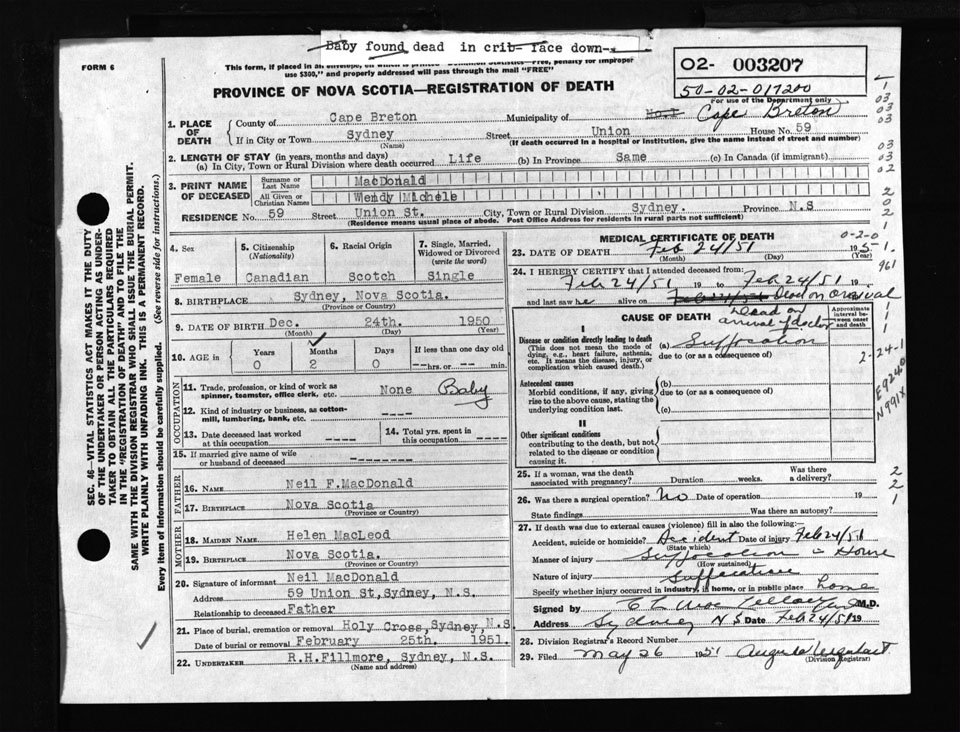 Baby found dead in crib- face down-
FORM 6
This form, if placed in an envelope, on which is printed "Dominion Statistics—Free, penalty for improper
use $300," and properly addressed will pass through the mail "FREE"
PROVINCE OF NOVA SCOTIA—REGISTRATION OF DEATH
O2- 003207
50-02-017200
For use of the Department only
1. PLACE OF DEATH
County of Cape Breton Municipality of No.1 Cape Breton
If in City or Town Sydney Street Union House No. 59
(Name) (If death occurred in a hospital or institution, give the name instead of street and number)
2. LENGTH OF STAY (in years, months and days)
(a) In City, Town or Rural Division where death occurred Life (b) In Province Same (c) In Canada (if immigrant)
3. PRINT NAME OF DECEASED
Surname or Last Name MacDonald
All Given or Christian Names Wendy Michele
RESIDENCE No. 59 Street Union St. City, Town or Rural Division Sydney. Province N.S
(Residence means usual place of abode. Post Office Address for residents in rural parts not sufficient)
4. Sex
Female
5. Citizenship
(Nationality)
Canadian
6. Racial Origin
Scotch
7. Single, Married,
Widowed or Divorced
(write the word)
Single
8. BIRTHPLACE Sydney, Nova Scotia.
9. DATE OF BIRTH Dec. 24th. 1950
(Month) (Day) (Year)
10. AGE in
Years Months Days If less than one day old
0 2 0 --hrs. or -- min.
OCCUPATION
11. Trade, profession, or kind of work as
spinner, teamster, office clerk, etc. None Baby
12. Kind of industry or business, as cotton-
mill, lumbering, bank, etc. ----
13. Date deceased last worked
at this occupation ----
14. Total yrs. spent in
this occupation ----
15. If married give name of wife
or husband of deceased ----
FATHER
16. NAME Neil F.MacDonald
17. BIRTHPLACE Nova Scotia
(Province or Country)
MOTHER
18. MAIDEN NAME Helen MacLeod
19. BIRTHPLACE Nova Scotia.
(Province or Country)
20. Signature of informant Neil MacDonald
Address 59 Union St,Sydney, N.S.
Relationship to deceased Father
21. Place of burial, cremation or removal Holy Cross,Sydney,N.S
Date of burial or removal February 25th. 1951.
22. UNDERTAKER R.H.Fillmore, Sydney, N.S.
(Name and address)
MEDICAL CERTIFICATE OF DEATH
23. DATE OF DEATH Feb 24/51 1951.
(Month) (Day) (Year)
24. I HEREBY CERTIFY that I attended deceased from:
Feb 24/51 19 to Feb 24/51 19
and last saw he alive on Feb 24/51 Dead on arrival
CAUSE OF DEATH
Dead on
arrival of doctor
Approximate
interval between
onset and death
I
Disease or condition directly leading to death
(This does not mean the mode of
dying, e.g., heart failure, asthenia,
etc. It means the disease, injury, or
complication which caused death.)
(a) Suffocation
due to (or as a consequence of)
Antecedent causes
Morbid conditions, if any, giving
rise to the above cause, stating the
underlying condition last.
(b)
due to (or as a consequence of)
(c)
II
Other significant conditions
contributing to the death, but not
related to the disease or condition
causing it.
25. If a woman, was the death
associated with pregnancy? Duration weeks. Was there
a delivery?
26. Was there a surgical operation? No Date of operation 19
State findings Was there an autopsy?
27. If death was due to external causes (violence) fill in also the following:
Accident, suicide or homicide? Accident Date of injury Feb 24/51
(State which)
Manner of injury Suffocation - Home
(How sustained)
Nature of injury Suffocation
Specify whether injury occurred in industry, in home, or in public place home
Signed by M.D.
Address Sydney N.S. Date Feb 24/51 19
28. Division Registrar's Record Number
29. Filed May 26 1951
(Division Registrar)
SEC. 46—VITAL STATISTICS ACT MAKES IT THE DUTY
OF THE UNDERTAKER OR PERSON ACTING AS UNDER-
TAKER TO OBTAIN ALL THE PARTICULARS REQUIRED
IN THE "REGISTRATION OF DEATH" AND TO FILE THE
SAME WITH THE DIVISION REGISTRAR WHO SHALL ISSUE THE BURIAL PERMIT.
WRITE PLAINLY WITH UNFADING INK. THIS IS A PERMANENT RECORD.
Every item of information should be carefully supplied. (See reverse side for instructions.)
1
03
03
03
03
03
02
2
0
2
1
0-2-0
1
961
1
1
1
2-24-1
E9240
N991X
2
2
1